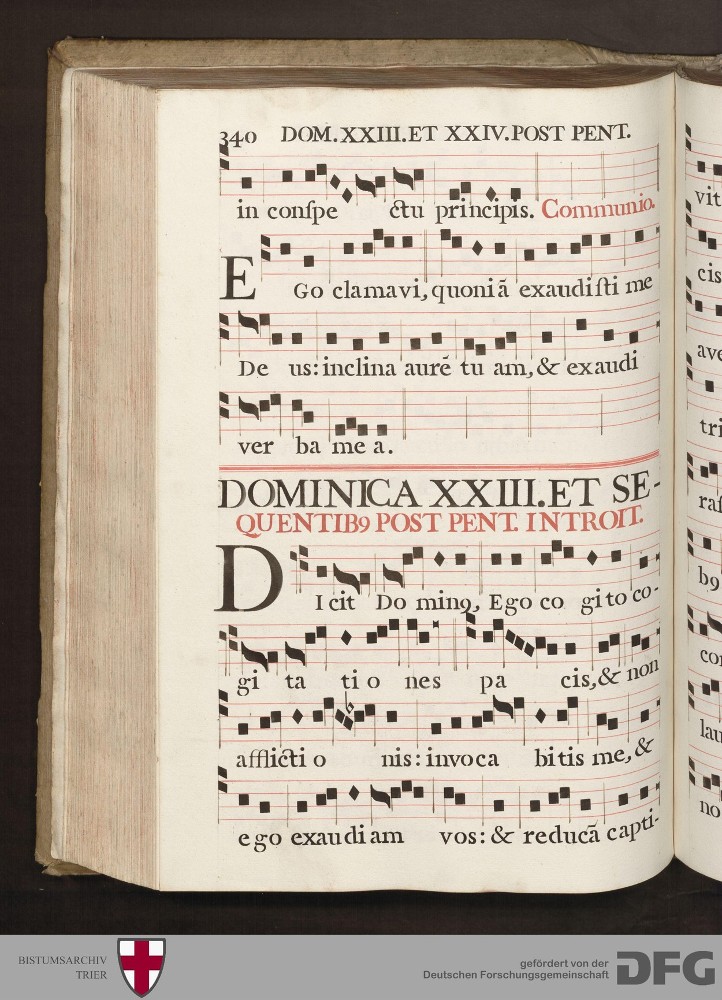 340 DOM.XXIII.ET XXIV.POST PENT.
in conſpe ctu principis. Communio.
EGo clamavi, quoniā exaudiſti me
De us: inclina aurē tu am, & exaudi
ver ba me a.
DOMINICA XXIII.ET SE-
QUENTIB9 POST PENT. INTROIT.
DIcit Do min9, Ego co gito co-
gi ta ti o nes pa cis, & non
afflicti o nis: invoca bitis me, &
ego exaudiam vos: & reducā capti-
vit
cis
ave
tri
raſ
b9
con
lau
no
BISTUMSARCHIV
TRIER
gefördert von der
Deutschen Forschungsgemeinschaft
DFG